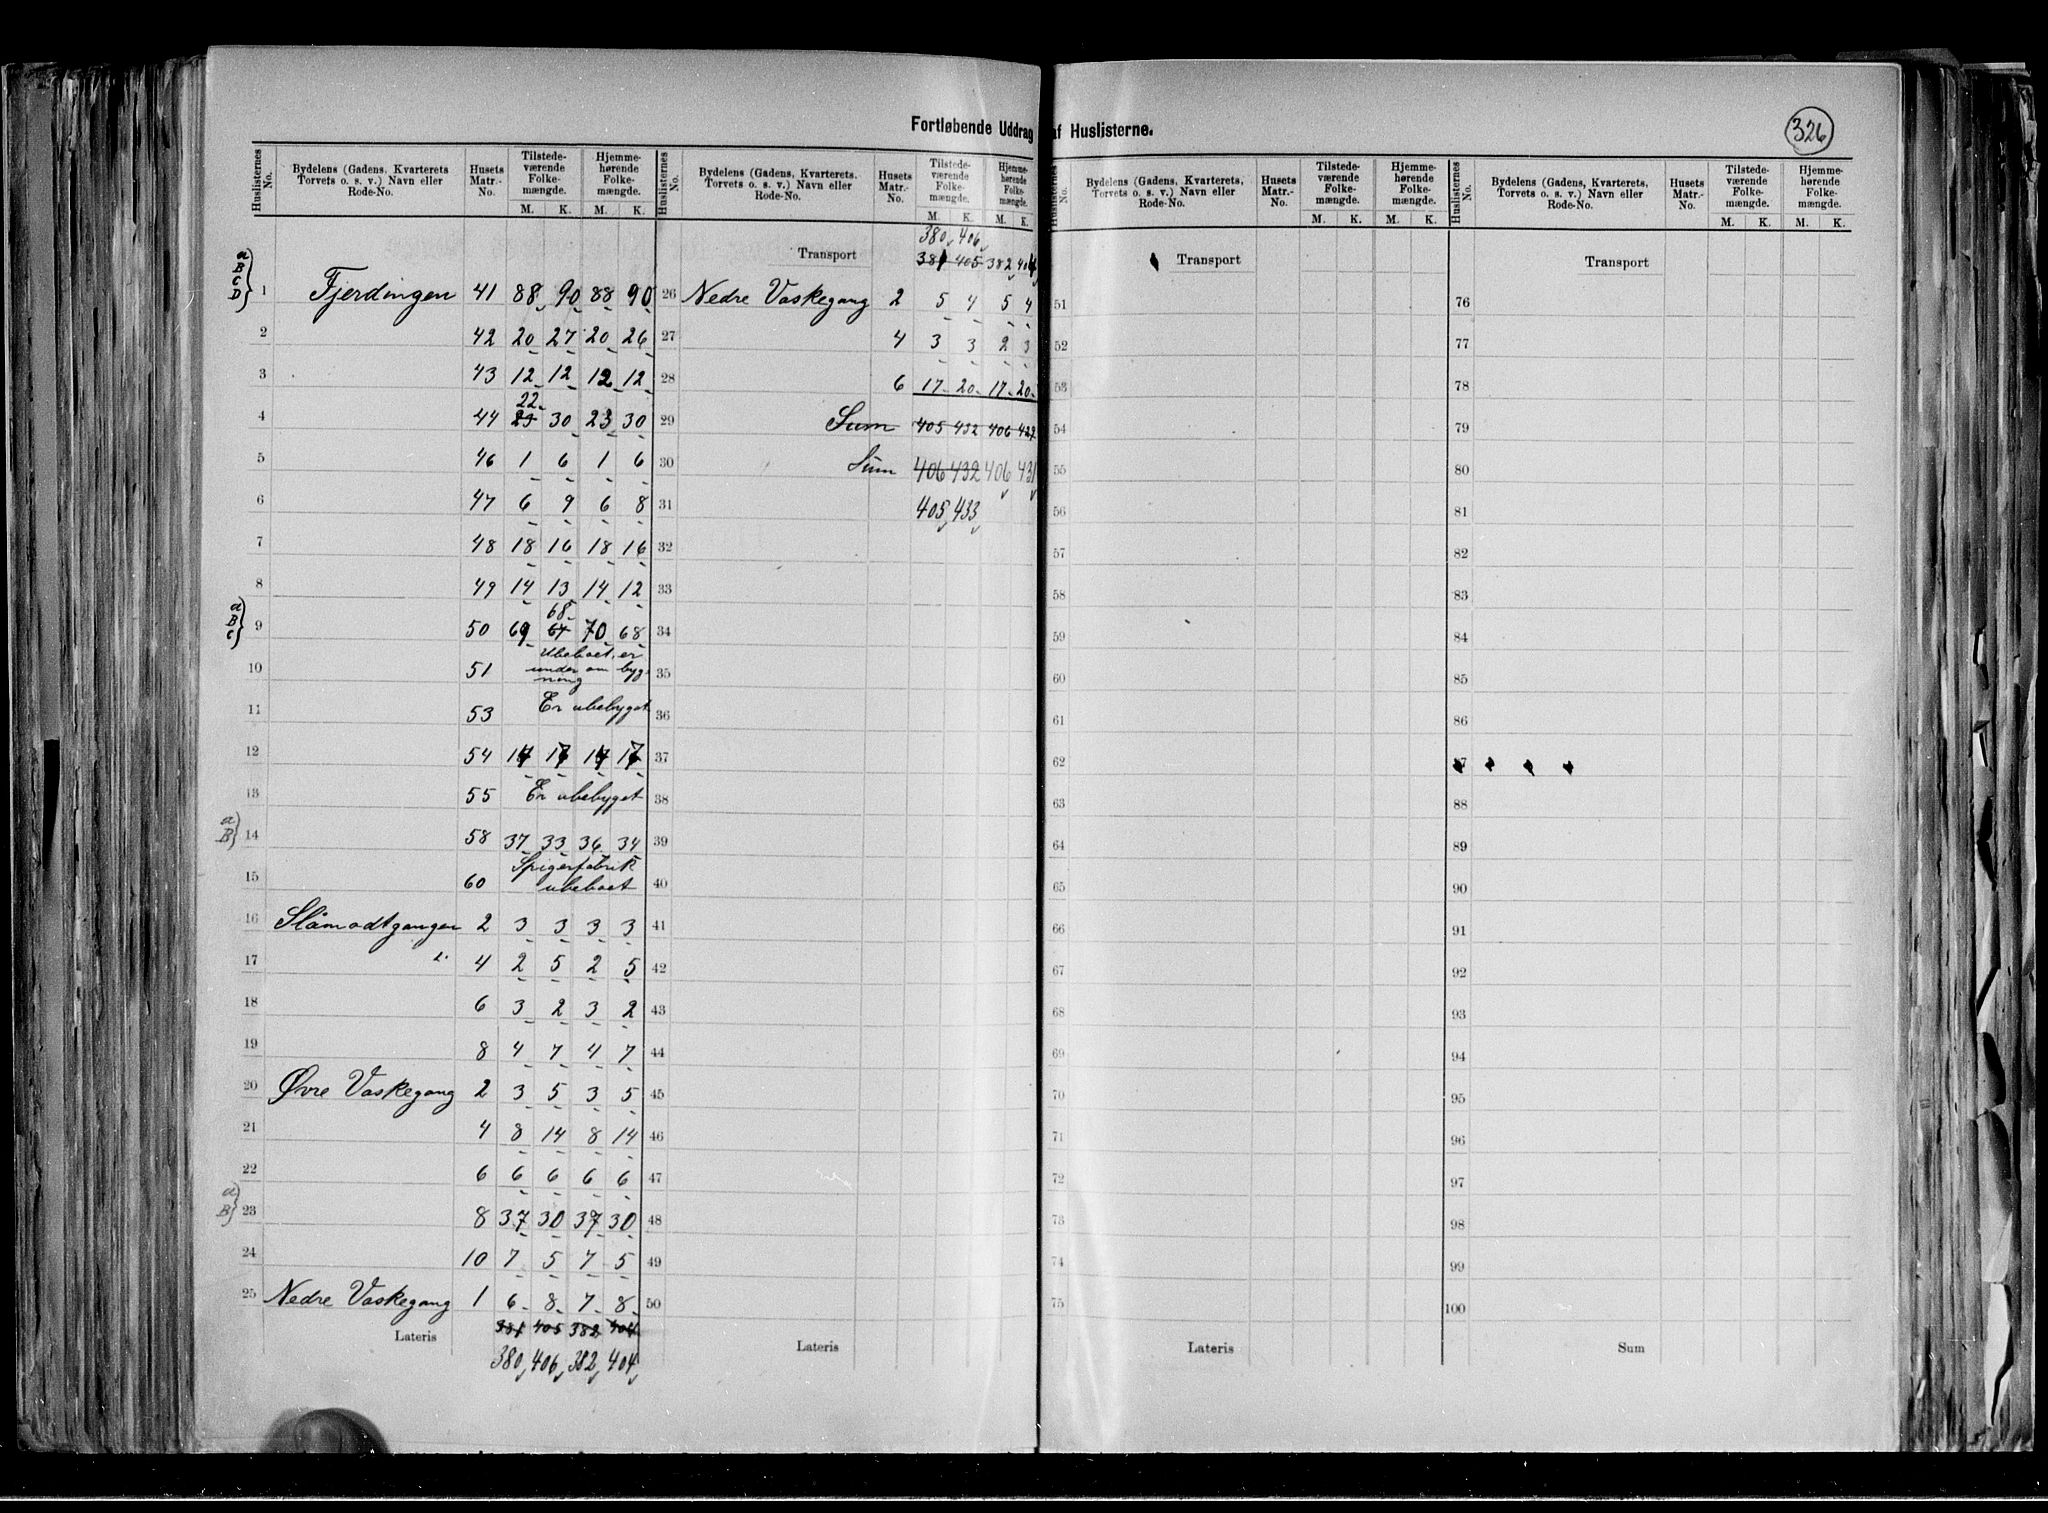 Fortløbende Uddrag af Huslisterne.
326
Huslisternes No. Bydelens (Gadens, Kvarterets, Torvets o. s. v.) Navn eller Rode-No. Husets Matr.-No. Tilstedeværende Folkemængde. M. K. Hjemmehørende Folkemængde. M. K.
a B C D } 1 Fjerdingen 41 88 90 88 90
2 42 20 27 20 26
3 43 12 12 12 12
22
4 44 23 30 23 30
5 46 1 6 1 6
6 47 6 9 6 8
7 48 18 16 18 16
8 49 14 13 14 12
68
a B C } 9 50 69 67 70 68
10 51 Ubeboet, er under om byg-
ning
11 53 Er ubebyget
12 54
13 55 Er ubebyget
a B } 14 58 37 33 36 34
15 60 Spigerfabrik
ubeboet
16 Slåmodtgangen 2 3 3 3 3
17 4 2 5 2 5
18 6 3 2 3 2
19 8 4 7 4 7
20 Øvre Vaskegang 2 3 5 3 5
21 4 8 14 8 14
22 6 6 6 6 6
a B } 23 8 37 30 37 30
24 10 7 5 7 5
25 Nedre Vaskegang 1 6 8 7 8
Lateris 381 405 382 404
380 406 382 404
Huslisternes No. Bydelens (Gadens, Kvarterets, Torvets o. s. v.) Navn eller Rode-No. Husets Matr.-No. Tilstedeværende Folkemængde. M. K. Hjemmehørende Folkemængde. M. K.
380 406
Transport 381 405 382 404
26 Nedre Vaskegang 2 5 4 5 4
27 4 3 3 2 3
28 6 17 20 17 20
29 Sum 405 432 406 427
30 Sum 406 432 406 431
31 405 433
32
33
34
35
36
37
38
39
40
41
42
43
44
45
46
47
48
49
50
Lateris
Huslisternes No. Bydelens (Gadens, Kvarterets, Torvets o. s. v.) Navn eller Rode-No. Husets Matr.-No. Tilstedeværende Folkemængde. M. K. Hjemmehørende Folkemængde. M. K.
Transport
51
52
53
54
55
56
57
58
59
60
61
62
63
64
65
66
67
68
69
70
71
72
73
74
75
Lateris
Huslisternes No. Bydelens (Gadens, Kvarterets, Torvets o. s. v.) Navn eller Rode-No. Husets Matr.-No. Tilstedeværende Folkemængde. M. K. Hjemmehørende Folkemængde. M. K.
Transport
76
77
78
79
80
81
82
83
84
85
86
87
88
89
90
91
92
93
94
95
96
97
98
99
100
Sum